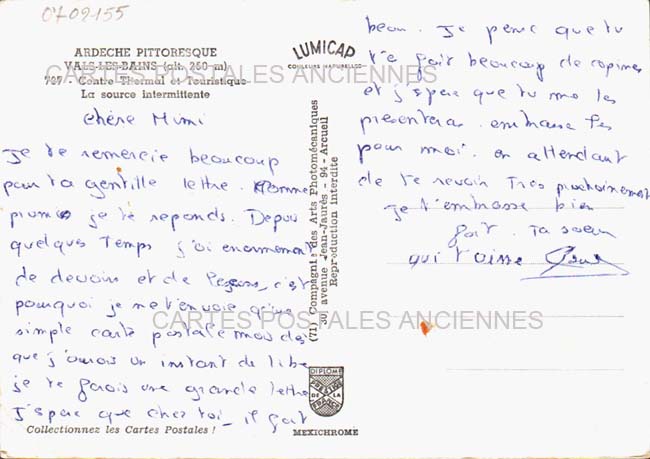 0709-155
ARDECHE PITTORESQUE
VALS-LES-BAINS (alt. 250 m)
707 - Centre Thermal et Touristique
La source intermittente
LUMICAP
COULEURS NATURELLES
CARTES POSTALES ANCIENNES
chère Mimi
Je te remercie beaucoup
pour ta gentille lettre. Comme
promis je te reponds. Depuis
quelques temps j'ai enormement
de devoirs et de leçons, c'est
pourquoi je ne t'envoie qu'une
simple carte postale mais dès
que j'aurais un instant de libre
je te ferais une grande lettre
J'spere que chez toi il fait
Collectionnez les Cartes Postales !
(71) Compagnie des Arts Photomécaniques
30, avenue Jean-Jaurès - 94 - Arcueil
Reproduction Interdite
DIPLOME
PRESTIGE
DE LA
FRANCE
MEXICHROME
beau. Je pense que tu
t'es fait beaucoup de copines
et j'spere que tu me les
presenteras. embrasse les
pour moi. en attendant
de te revoir Très prochainement
Je t'embrasse bien
fort. Ta soeur
qui t'aime
CARTES POSTALES ANCIENNES